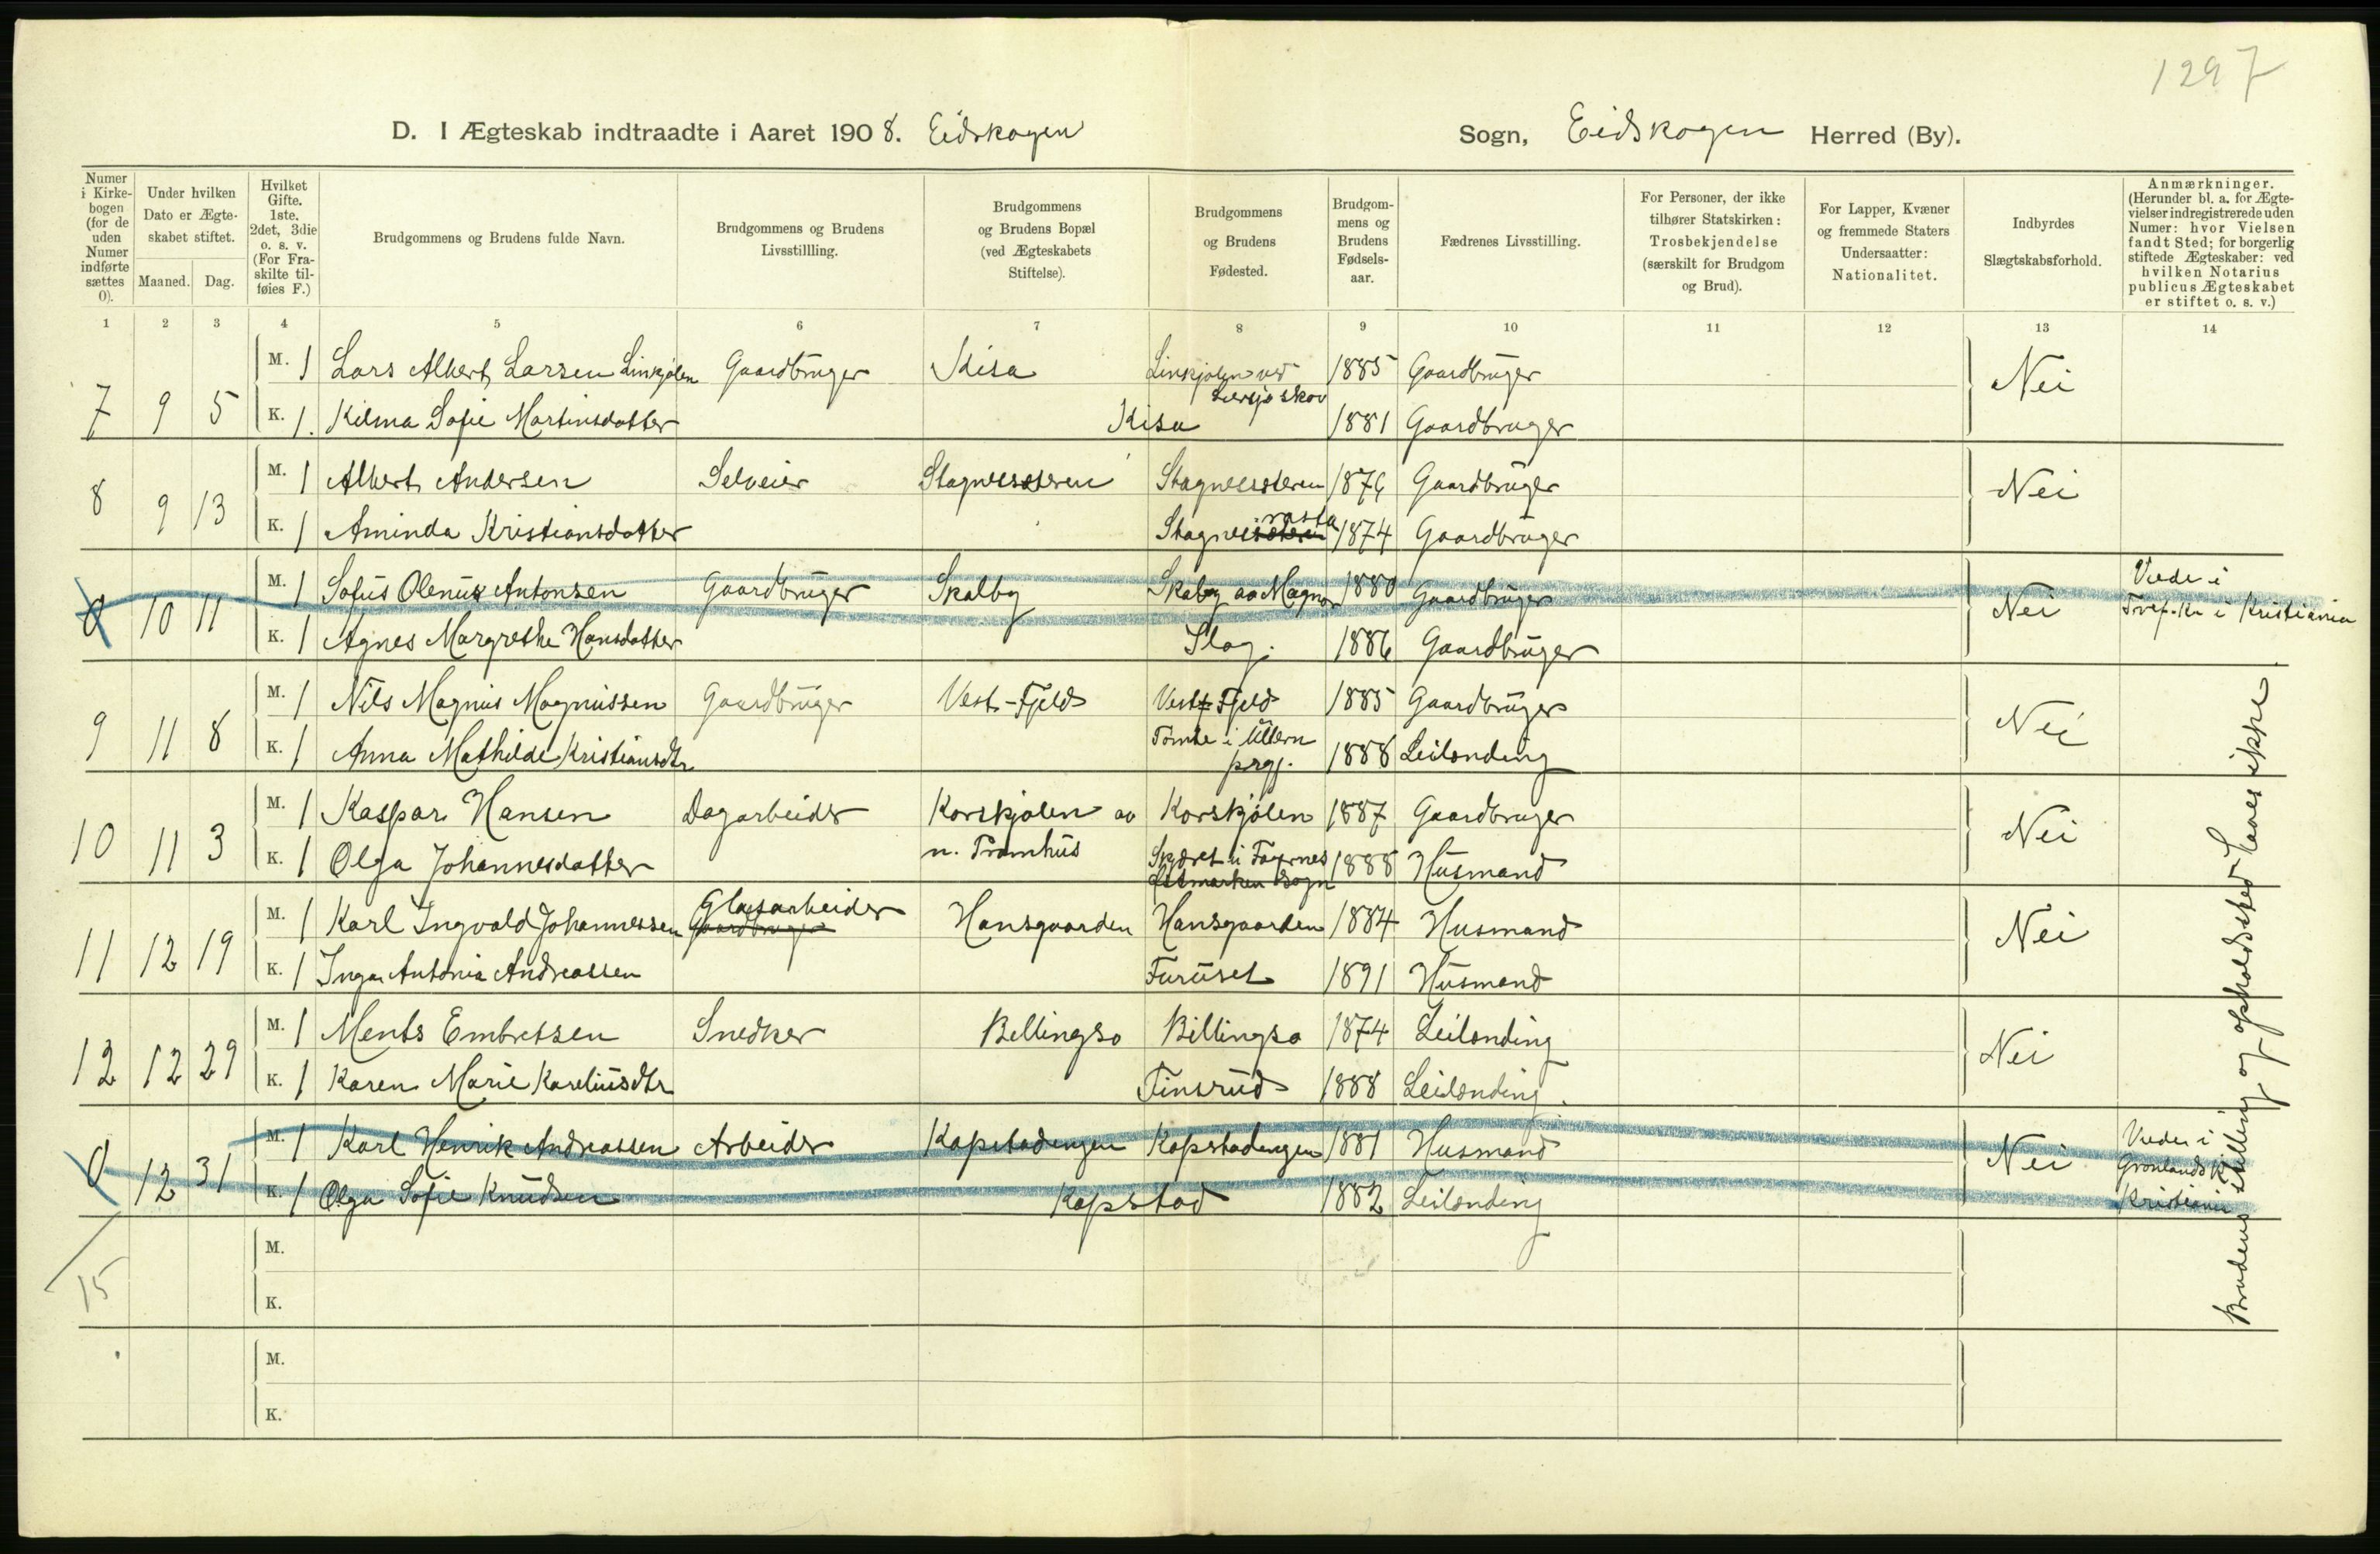 1297
D. I Ægteskab indtraadte i Aaret 1908. Eidskogen Sogn, Eidskogen Herred (By).
Numer i Kirkebogen (for de uden Numer indførte sættes 0).
Under hvilken Dato er Ægteskabet stiftet.
Maaned. Dag.
Hvilket Gifte. 1ste. 2det, 3die o. s. v. (For Fraskilte tilføies F.)
Brudgommens og Brudens fulde Navn.
Brudgommens og Brudens Livsstillling.
Brudgommens og Brudens Bopæl (ved Ægteskabets Stiftelse).
Brudgommens og Brudens Fødested.
Brudgommens og Brudens Fødselsaar.
Fædrenes Livsstilling.
For Personer, der ikke tilhører Statskirken: Trosbekjendelse (særskilt for Brudgom og Brud).
For Lapper, Kvæner og fremmede Staters Undersaatter: Nationalitet.
Indbyrdes Slægtskabsforhold.
Anmærkninger. (Herunder bl. a. for Ægtevielser indregistrerede uden Numer: hvor Vielsen fandt Sted; for borgerlig stiftede Ægteskaber: ved hvilken Notarius publicus Ægteskabet er stiftet o. s. v.)
1 2 3 4 5 6 7 8 9 10 11 12 13 14
7 9 5 M. 1 Lars Albert Larsen Linkjølen Gaardbruger Kisa Linkjølen ved 1885 Gaardbruger Nei
K. 1. Kilma Sofie Martinsdatter Kisa 1881 Gaardbruger
8 9 13 M. 1 Albert Andersen Selveier Stagnessæteren Stagnessæteren 1876 Gaardbruger Nei
K. 1 Aminda Kristiansdatter 1874 Gaardbruger
0 10 11 M. 1 Sofus Olenus Antonsen Gaardbruger Skalby Skalby aa Magnor 1880 Gaardbruger Nei Viede i
Tref. Kr i Kristiania
K. 1 Agnes Margrethe Hansdatter Slag. 1886 Gaardbruger
9 11 8 M. 1 Nils Magnus Magnussen Gaardbruger Vest-Fjeld Vest-Fjeld 1885 Gaardbruger Nei
K. 1 Anna Mathilde Kristiansdtr Tomte i Ullern
prgj. 1888 Leilænding
10 11 3 M. 1 Kaspar Hansen Dagarbeider Korskjølen av Korskjølen 1887 Gaardbruger Nei
n. Tramhus
K. 1 Olga Johannesdatter Skjæret i
Østmarken Sogn 1888 Husmand
11 12 19 M. 1 Karl Ingvald Johannessen Glasarbeider
Gaardbruger Hansgaarden Hansgaarden 1884 Husmand Nei
K. 1 Inga Antonia Andreassen Furuset 1891 Husmand
12 12 29 M. 1 Ments Embretsen Snedker Billingso Billingso 1874 Leilænding Nei
K. 1 Karen Marie Kareliusdtr Finsrud 1888 Leilænding.
0 12 31 M. 1 Karl Henrik Andreassen Arbeider Kopstadengen Kopstadengen 1881 Husmand Nei Viede i
Grønlands K.
Kristiania
K. 1 Olga Sofie Knudsen Kopstad 1882 Leilænding
15
M.
K.
M.
K.
Brudens stilling og opholdssted haves ikke